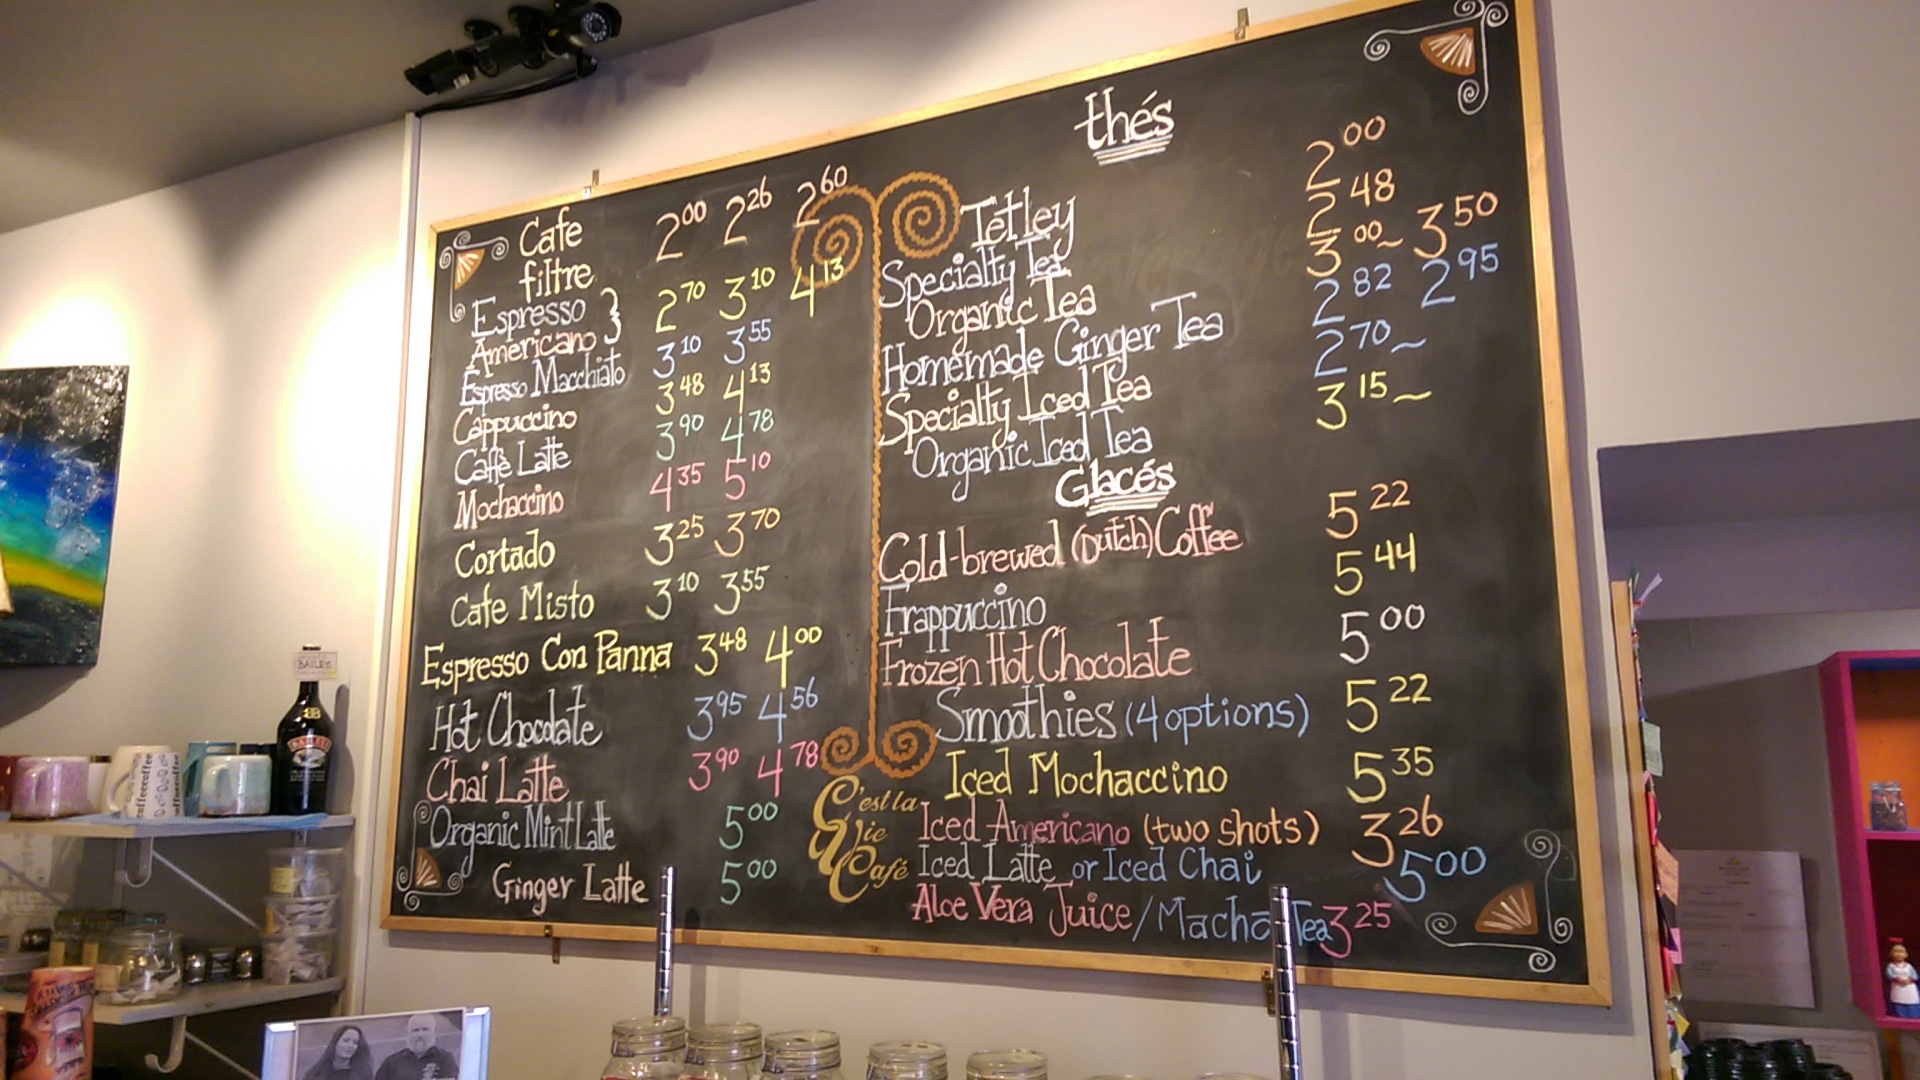 Cafe filtre 2.00 2.26 2.60
Espresso }
Americano } 2.70 3.10 4.13
Espresso Macchiato 3.10 3.55
Cappuccino 3.48 4.13
Caffè Latte 3.90 4.78
Mochaccino 4.35 5.10
Cortado 3.25 3.70
Cafe Misto 3.10 3.55
Espresso Con Panna 3.48 4.00
Hot Chocolate 3.95 4.56
Chai Latte 3.90 4.78
Organic Mint Latte 5.00
Ginger Latte 5.00
thés
Tetley 2.00
Specialty Tea 2.48
Organic Tea 3.00~ 3.50
Homemade Ginger Tea 2.82 2.95
Specialty Iced Tea 2.70~
Organic Iced Tea 3.15~
Glacés
Cold-brewed (Dutch) Coffee 5.22
Frappuccino 5.44
Frozen Hot Chocolate 5.00
Smoothies (4 options) 5.22
Iced Mochaccino 5.35
Iced Americano (two shots) 3.26
Iced Latte or Iced Chai 5.00
Aloe Vera Juice/Macha Tea 3.25
C'est la
Vie
Café
BAILEYS